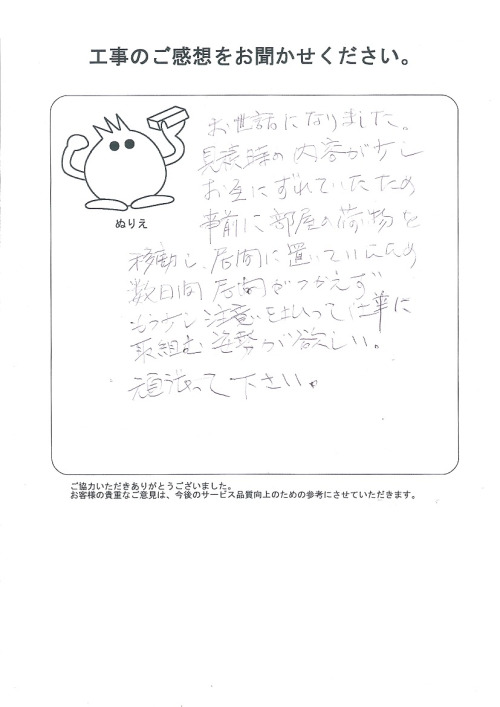 工事のご感想をお聞かせください。
お世話になりました。
見積時の内容が少し
お互にずれていたため
事前に部屋の荷物を
ぬりえ
移動し、居間に置いていたため
数日間居間がつかえず
もう少し注意を払って仕事に
取組む姿勢が欲しい。
頑張って下さい。
ご協力いただきありがとうございました。
お客様の貴重なご意見は、今後のサービス品質向上のための参考にさせていただきます。